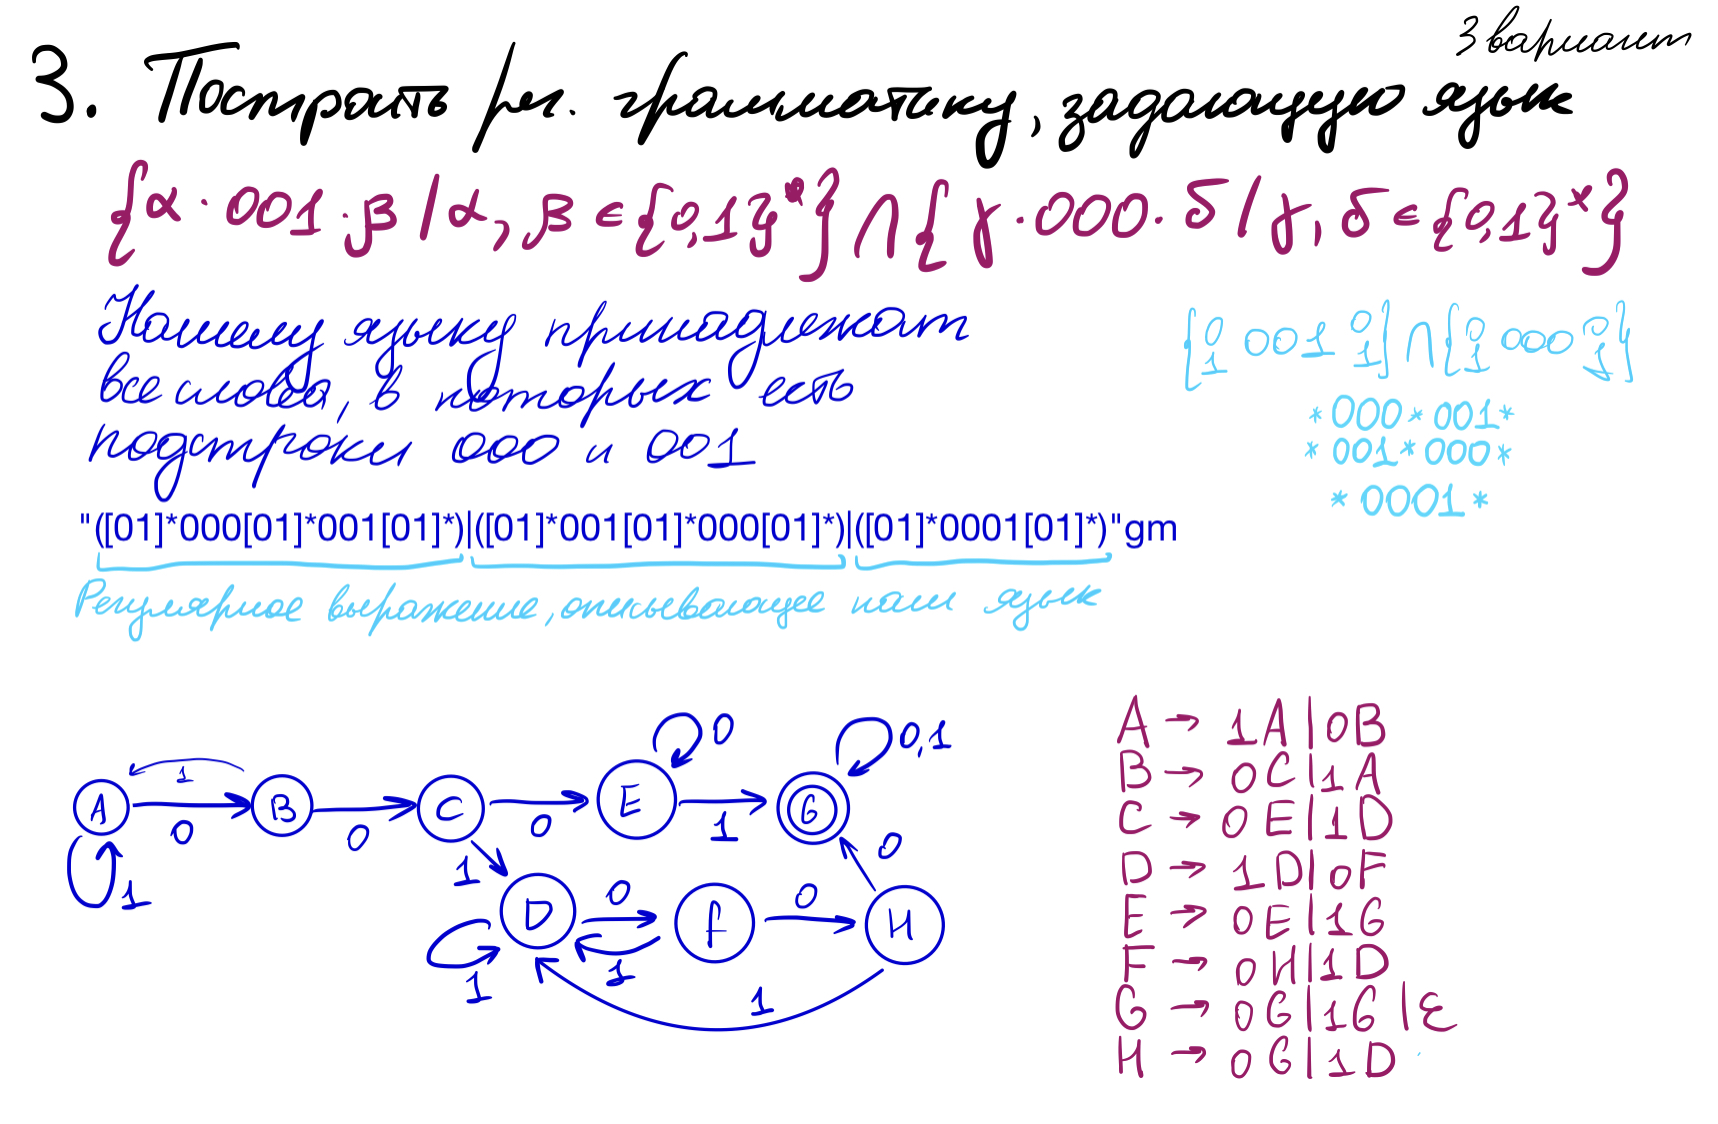 3 вариант
3. Построить рег. грамматику, задающую язык
{α · 001 · β / α, β ∈ {0,1}*} ∩ {γ · 000 · δ / γ, δ ∈ {0,1}*}
Нашему языку принадлежат
все слова, в которых есть
подстроки 000 и 001
{0 1 001 0 1} ∩ {0 1 000 0 1}
*000*001*
*001*000*
*0001*
"([01]*000[01]*001[01]*)|([01]*001[01]*000[01]*)|([01]*0001[01]*)"gm
Регулярное выражение, описывающее наш язык
0
0,1
1
A B C E G
0 0 0 1
1 1 0
D 0 F 0 H
1 1
1
A → 1A | 0B
B → 0C | 1A
C → 0E | 1D
D → 1D | 0F
E → 0E | 1G
F → 0H | 1D
G → 0G | 1G | ε
H → 0G | 1D